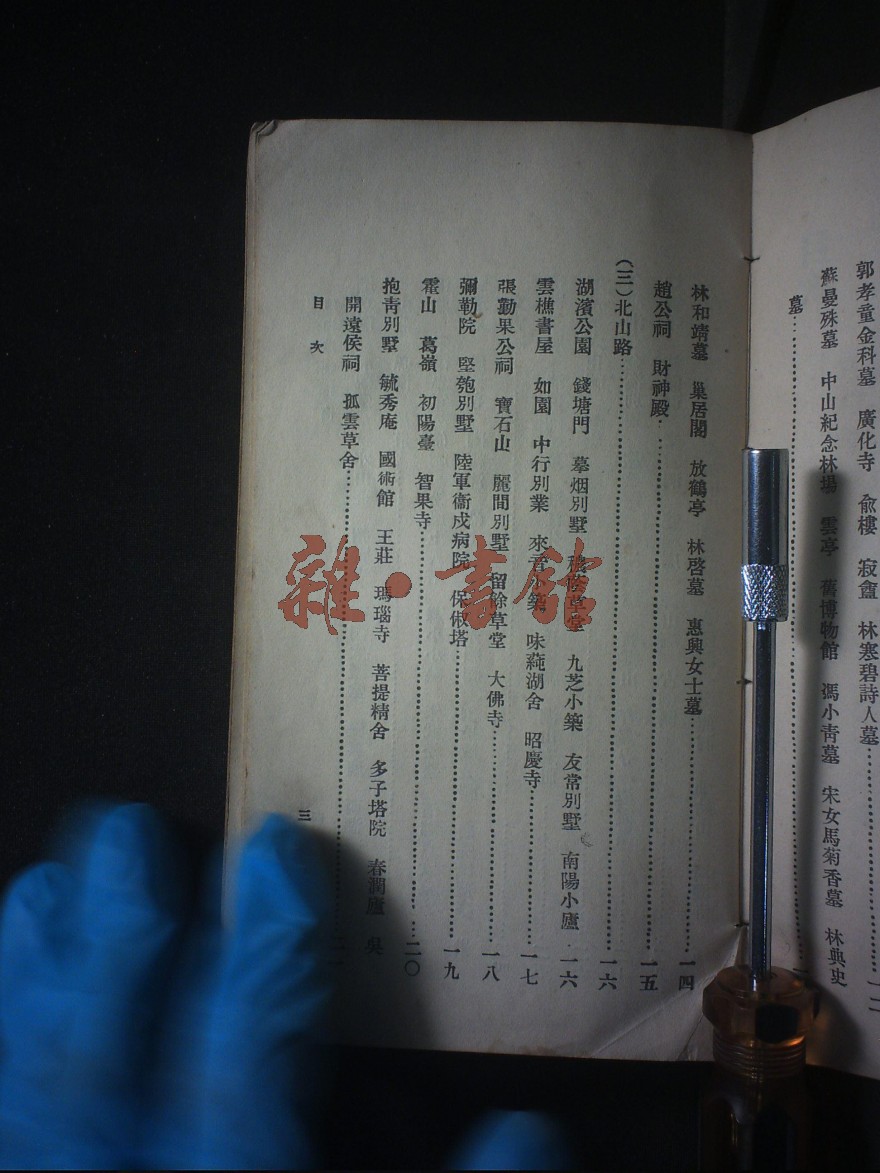 郭孝童金科墓　廣化寺　俞樓　寂盦　林寒碧詩人墓………一二
蘇曼殊墓　中山紀念林場　雲亭　舊博物館　馮小青墓　宋女馬菊香墓　林典史
墓………
林和靖墓　巢居閣　放鶴亭　林啓墓　惠興女士墓………一四
趙公祠　財神殿………一五
(三)北山路………一六
湖濱公園　錢塘門　摹烟別墅　穗蔭草堂　九芝小築　友常別墅　南陽小廬…一六
雲樵書屋　如園　中行別業　來音小築　味蒓湖舍　昭慶寺………一七
張勤果公祠　寶石山　麗間別墅　留餘草堂　大佛寺………一八
彌勒院　堅匏別墅　陸軍衞戍病院　保俶塔………一九
霍山　葛嶺　初陽臺　智果寺………二〇
抱靑別墅　毓秀庵　國術館　王莊　瑪瑙寺　菩提精舍　多子塔院　春潤廬　吳
開遠侯祠　孤雲草舍………
目次
三
雜·書館